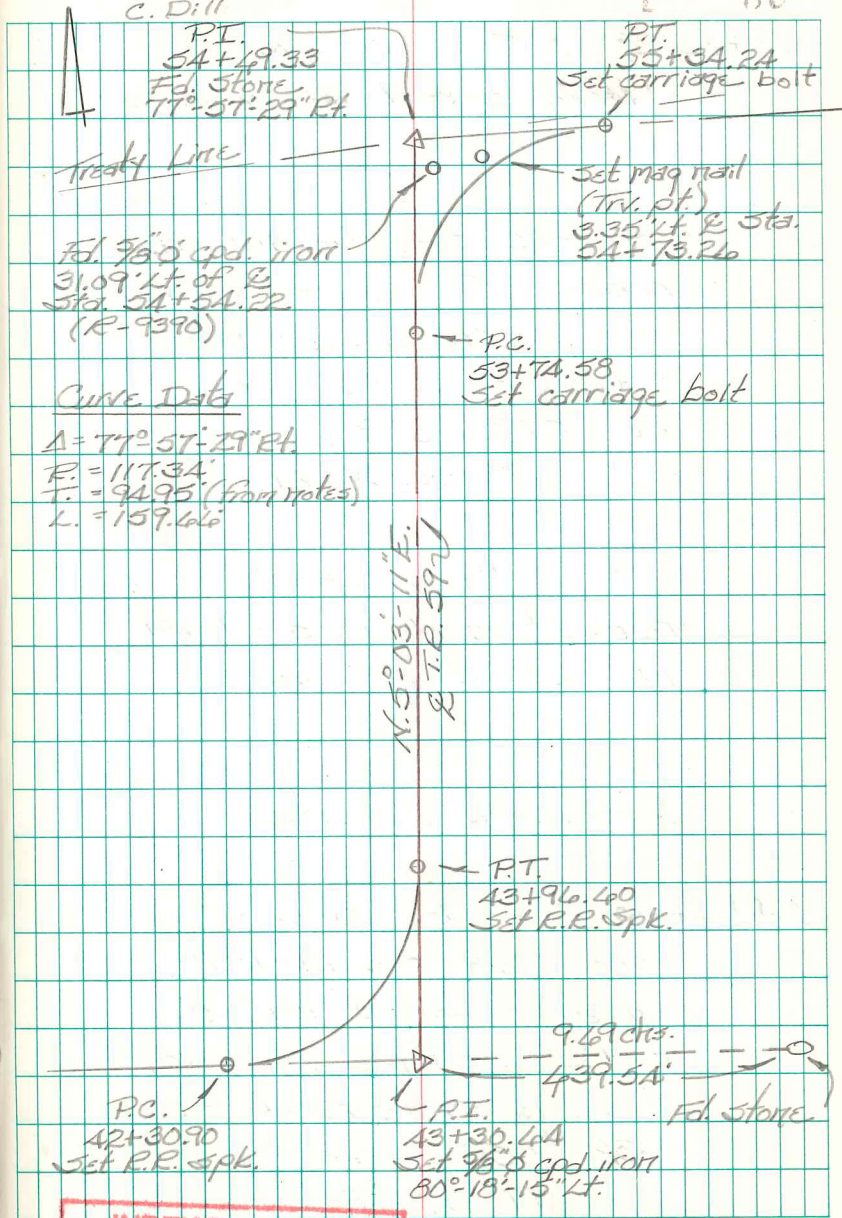 C. Dill
P.I.
54+69.33
Fd. Stone
77°-57'-29" Rt.
P.T.
55+34.24
Set carriage bolt
Treaty Line
Set mag nail
(Trv. pt.)
3.35' Lt. ℄ Sta.
54+73.26
Fd. 5/8" ϕ cpd. iron
31.09' Lt. of ℄
Sta. 54+54.22
(R-9390)
P.C.
53+74.58
Set carriage bolt
Curve Data
Δ = 77°-57'-29" Rt.
R. = 117.34'
T. = 94.95' (from notes)
L. = 159.66'
N. 5°-03'-11" E.
℄ T.R. 59
P.T.
43+96.60
Set R.R. Spk.
9.69 chs.
639.54'
Fd. Stone
P.C.
42+30.90
Set R.R. Spk.
P.I.
43+30.64
Set 5/8" ϕ cpd. iron
80°-18'-15" Lt.